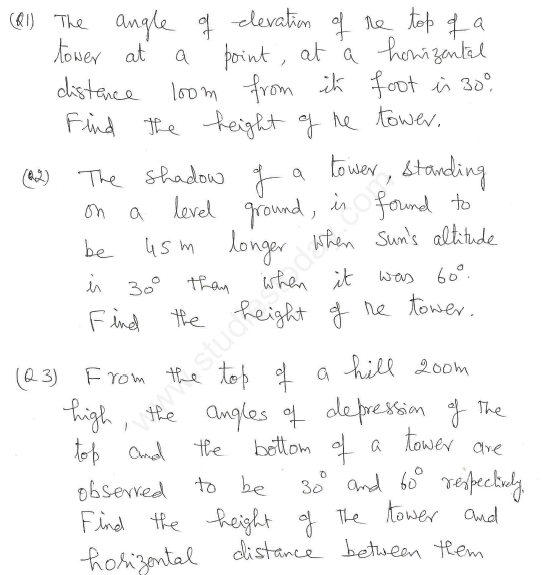 (Q1) The angle of elevation of the top of a
tower at a point, at a horizontal
distance 100m from its foot is 30°.
Find the height of the tower.
(Q2) The shadow of a tower, standing
on a level ground, is found to
be 45m longer when Sun's altitude
is 30° than when it was 60°.
Find the height of the tower.
(Q3) From the top of a hill 200m
high, the angles of depression of The
top and the bottom of a tower are
observed to be 30° and 60° respectively.
Find the height of The tower and
horizontal distance between them
www.studiestoday.com